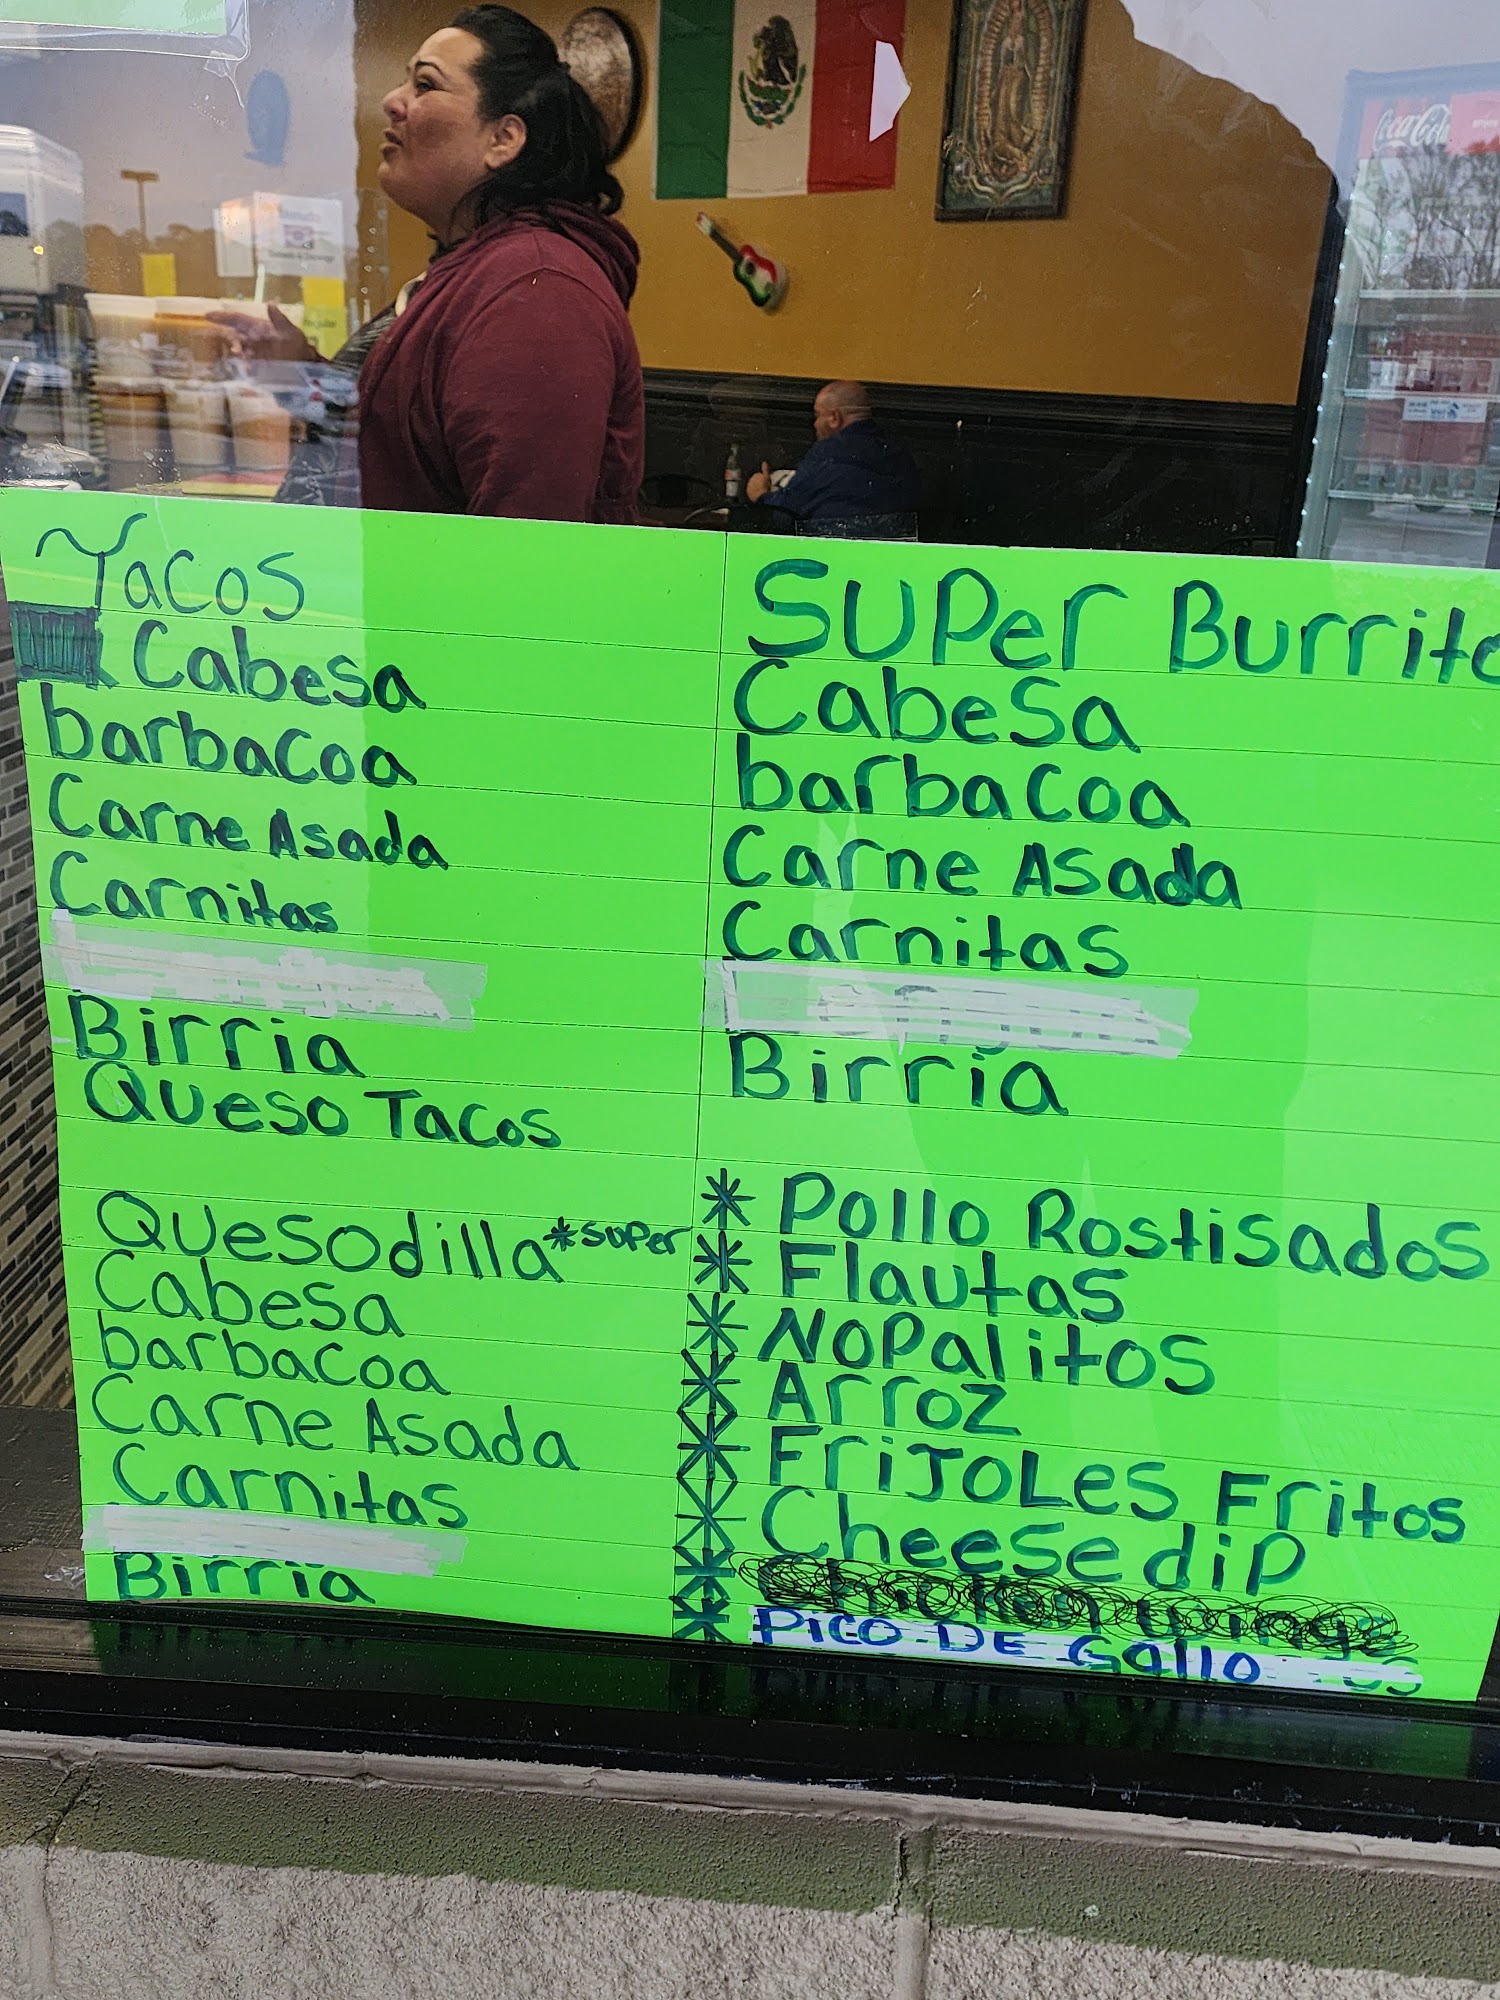 Coca-Cola
Tacos
Cabesa
barbacoa
Carne Asada
Carnitas
Birria
Queso Tacos
Quesodilla *super
Cabesa
barbacoa
Carne Asada
Carnitas
Birria
Super Burrito
Cabesa
barbacoa
Carne Asada
Carnitas
Birria
* Pollo Rostisados
* Flautas
* Nopalitos
* Arroz
* Frijoles Fritos
* Cheese dip
* Chicken wings
* Pico De Gallo